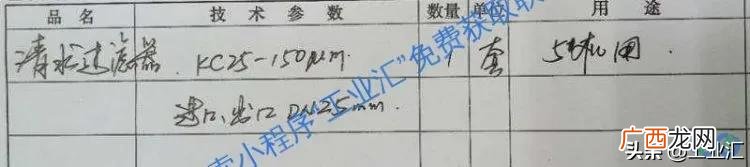 品名 技术参数 数量 单位 用途
清水过滤器 KC25-150μm. 1 套 5#机用
进口、出口 DN25mm.
索小程序“工业汇”免费获取联
广西龙网
头条 @工业汇